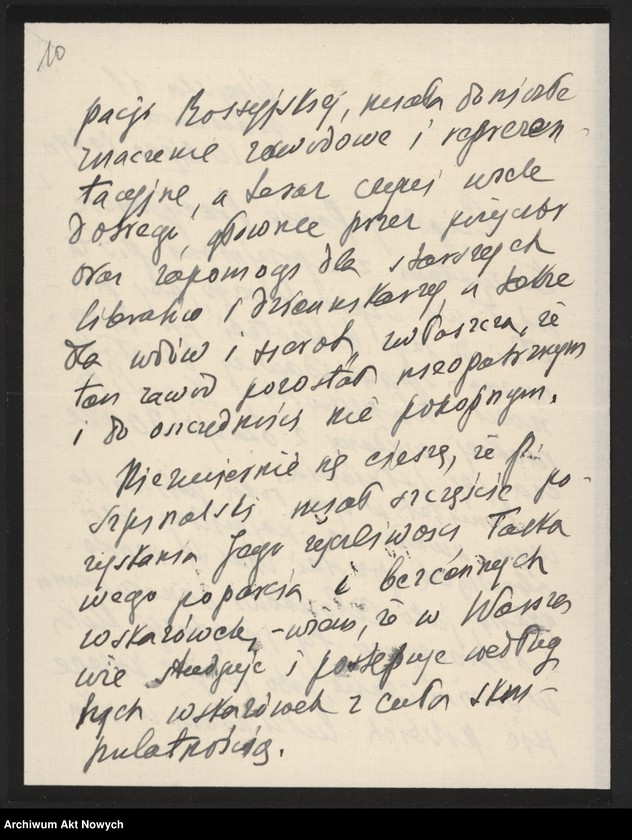 10
pacji Rossyjskiej, miała donośne
znaczenie zawodowe i reprezen-
tacyjne, a teraz czyni wiele
dobrego, głównie przez pożyczki
oraz zapomogi dla starszych
literatów i dziennikarzy, a także
dla wdów i sierot, zwłaszcza, że
ten zawód pozostał nieopatrznym
i do oszczędności nie pokopnym.
Niezmiernie się cieszę, że P.
Szymalski miał szczęście po-
zyskania Jego życzliwości łaska
wego poparcia i bezcennych
wskazówek, - wiem, że w Warsza
wie studjuje i postępuje według
tych wskazówek z całą skru-
pulatnością.
Archiwum Akt Nowych